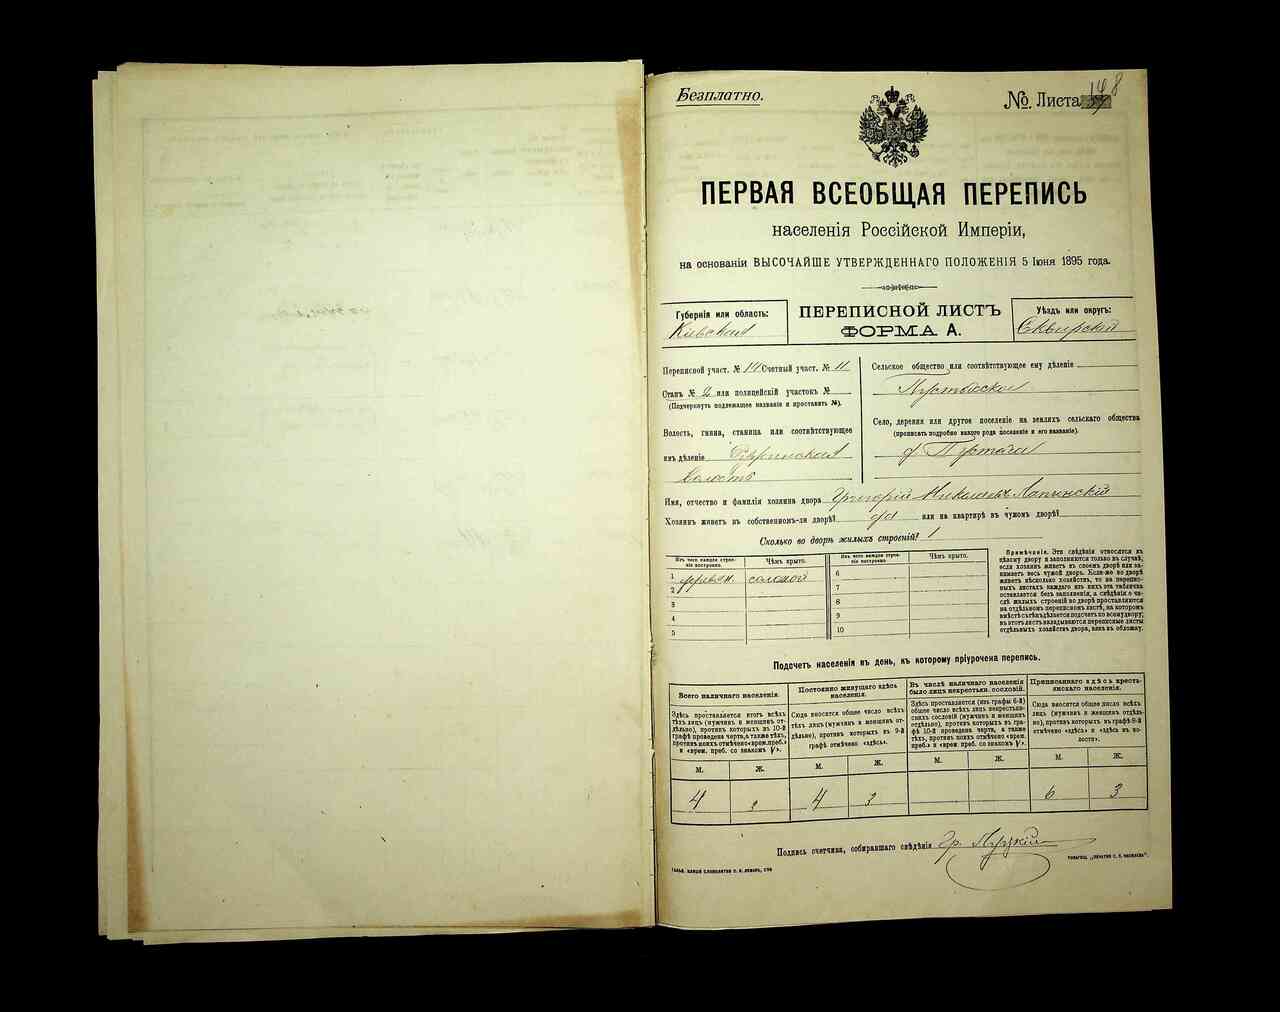 Безплатно.
№. Листа 148
ПЕРВАЯ ВСЕОБЩАЯ ПЕРЕПИСЬ
населенія Россійской Имперіи,
на основаніи ВЫСОЧАЙШЕ УТВЕРЖДЕННАГО ПОЛОЖЕНІЯ 5 Іюня 1895 года.
Губернія или область:
Кіевская
ПЕРЕПИСНОЙ ЛИСТЪ
ФОРМА А.
Уѣздъ или округъ:
Сквирскій
Переписной участ. № 14 Счетный участ. № 11
Станъ № 2 или полицейскій участокъ №
(Подчеркнуть подлежащее названіе и проставить №).
Волость, гмина, станица или соотвѣтствующее
имъ дѣленіе
волость
Сельское общество или соотвѣтствующее ему дѣленіе
Село, деревня или другое поселеніе на земляхъ сельскаго общества
(прописать подробно какого рода поселеніе и его названіе).
Имя, отчество и фамилія хозяина двора Григорій
Хозяинъ живетъ въ собственномъ-ли дворѣ? да или на квартирѣ въ чужомъ дворѣ?
Сколько во дворѣ жилыхъ строеній? 1
Изъ чего каждое строе-
ніе построено.
Чѣмъ крыто.
Изъ чего каждое строе-
ніе построено.
Чѣмъ крыто.
1 дерев. соломой
2
3
4
5
6
7
8
9
10
Примѣчаніе. Эти свѣдѣнія относятся къ
цѣлому двору и заполняются только въ случаѣ,
если хозяинъ живетъ въ своемъ дворѣ или за-
нимаетъ весь чужой дворъ. Если-же во дворѣ
живетъ нѣсколько хозяйствъ, то на перепис-
ныхъ листахъ каждаго изъ нихъ эта табличка
оставляется безъ заполненія, а свѣдѣнія о чи-
слѣ жилыхъ строеній во дворѣ проставляются
на отдѣльномъ переписномъ листѣ, на которомъ
вмѣстѣ съ тѣмъ дѣлается подсчетъ по всему двору;
въ этотъ листъ вкладываются переписные листы
отдѣльныхъ хозяйствъ двора, какъ въ обложку.
Подсчетъ населенія въ день, къ которому пріурочена перепись.
Всего наличнаго населенія.
Постоянно живущаго здѣсь
населенія.
Въ числѣ наличнаго населенія
было лицъ некрестьянск. сословій.
Приписаннаго здѣсь кресть-
янскаго населенія.
Здѣсь проставляется итогъ всѣхъ
тѣхъ лицъ (мужчинъ и женщинъ от-
дѣльно), противъ которыхъ въ 10-й
графѣ проведена черта, а также тѣхъ,
противъ коихъ отмѣчено «врем. преб.»
и «врем. преб. со знакомъ V».
Сюда вносится общее число всѣхъ
тѣхъ лицъ (мужчинъ и женщинъ от-
дѣльно), противъ которыхъ въ 9-й
графѣ отмѣчено «здѣсь».
Здѣсь проставляется (изъ графы 6-й)
общее число всѣхъ лицъ некрестьян-
скихъ сословій (мужчинъ и женщинъ
отдѣльно), противъ которыхъ въ гра-
фѣ 10-й проведена черта, а также
тѣхъ, противъ коихъ отмѣчено «врем.
преб.» и «врем. преб. со знакомъ V».
Сюда вносится общее число всѣхъ
лицъ (мужчинъ и женщинъ отдѣль-
но), противъ которыхъ въ графѣ 8-й
отмѣчено «здѣсь» и «здѣсь въ во-
лости».
М. Ж. М. Ж. М. Ж. М. Ж.
4 3 4 3 6 3
Подпись счетчика, собиравшаго свѣдѣнія